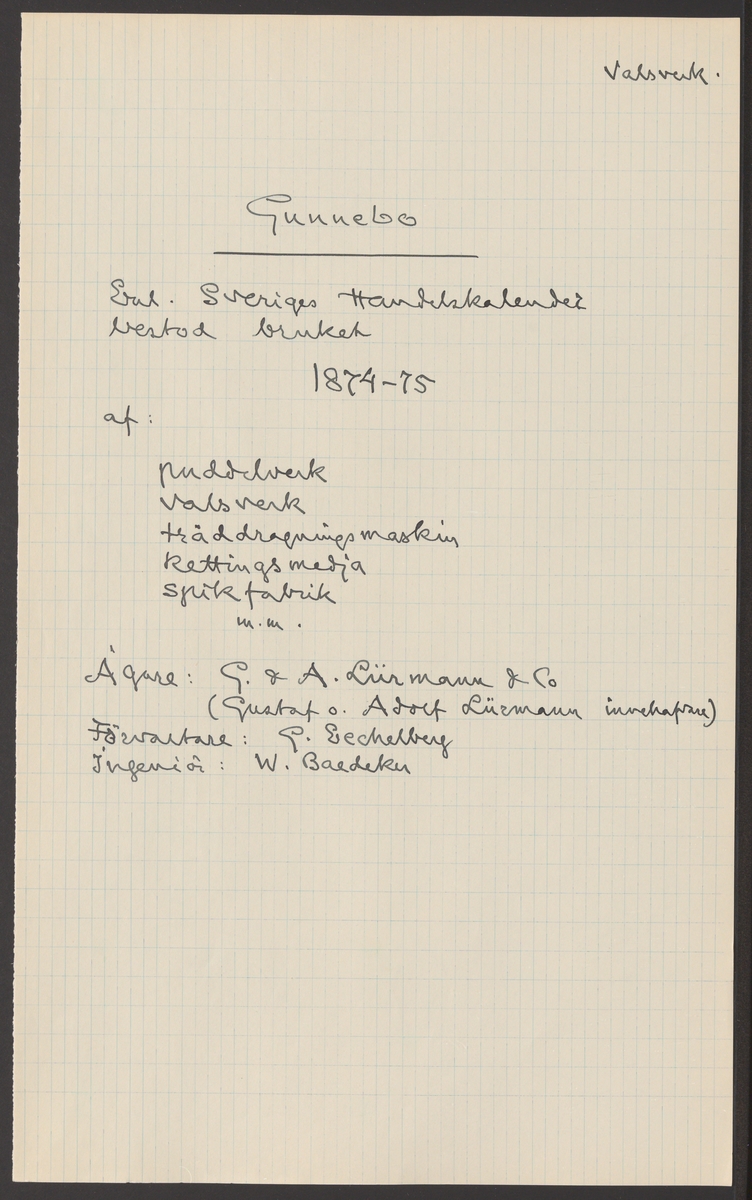 Valsverk.
Gunnebo
Enl. Sveriges Handelskalender
bestod bruket
1874-75
af:
puddelverk
valsverk
tråddragningsmaskin
kettingsmedja
spikfabrik
m.m.
Ägare: G. & A. Lürmann & Co
(Gustaf o. Adolf Lürmann innehafvare)
Förvaltare: G. Eechelberg
Ingeniör: W. Baedeker